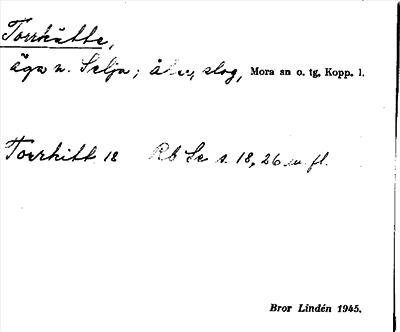 Torrhätte,
äga n. Selja; åker, slog, Mora sn o. tg, Kopp. l.
Torrhitt 18 Rb Se s. 18, 26 m. fl.
Bror Lindén 1945.